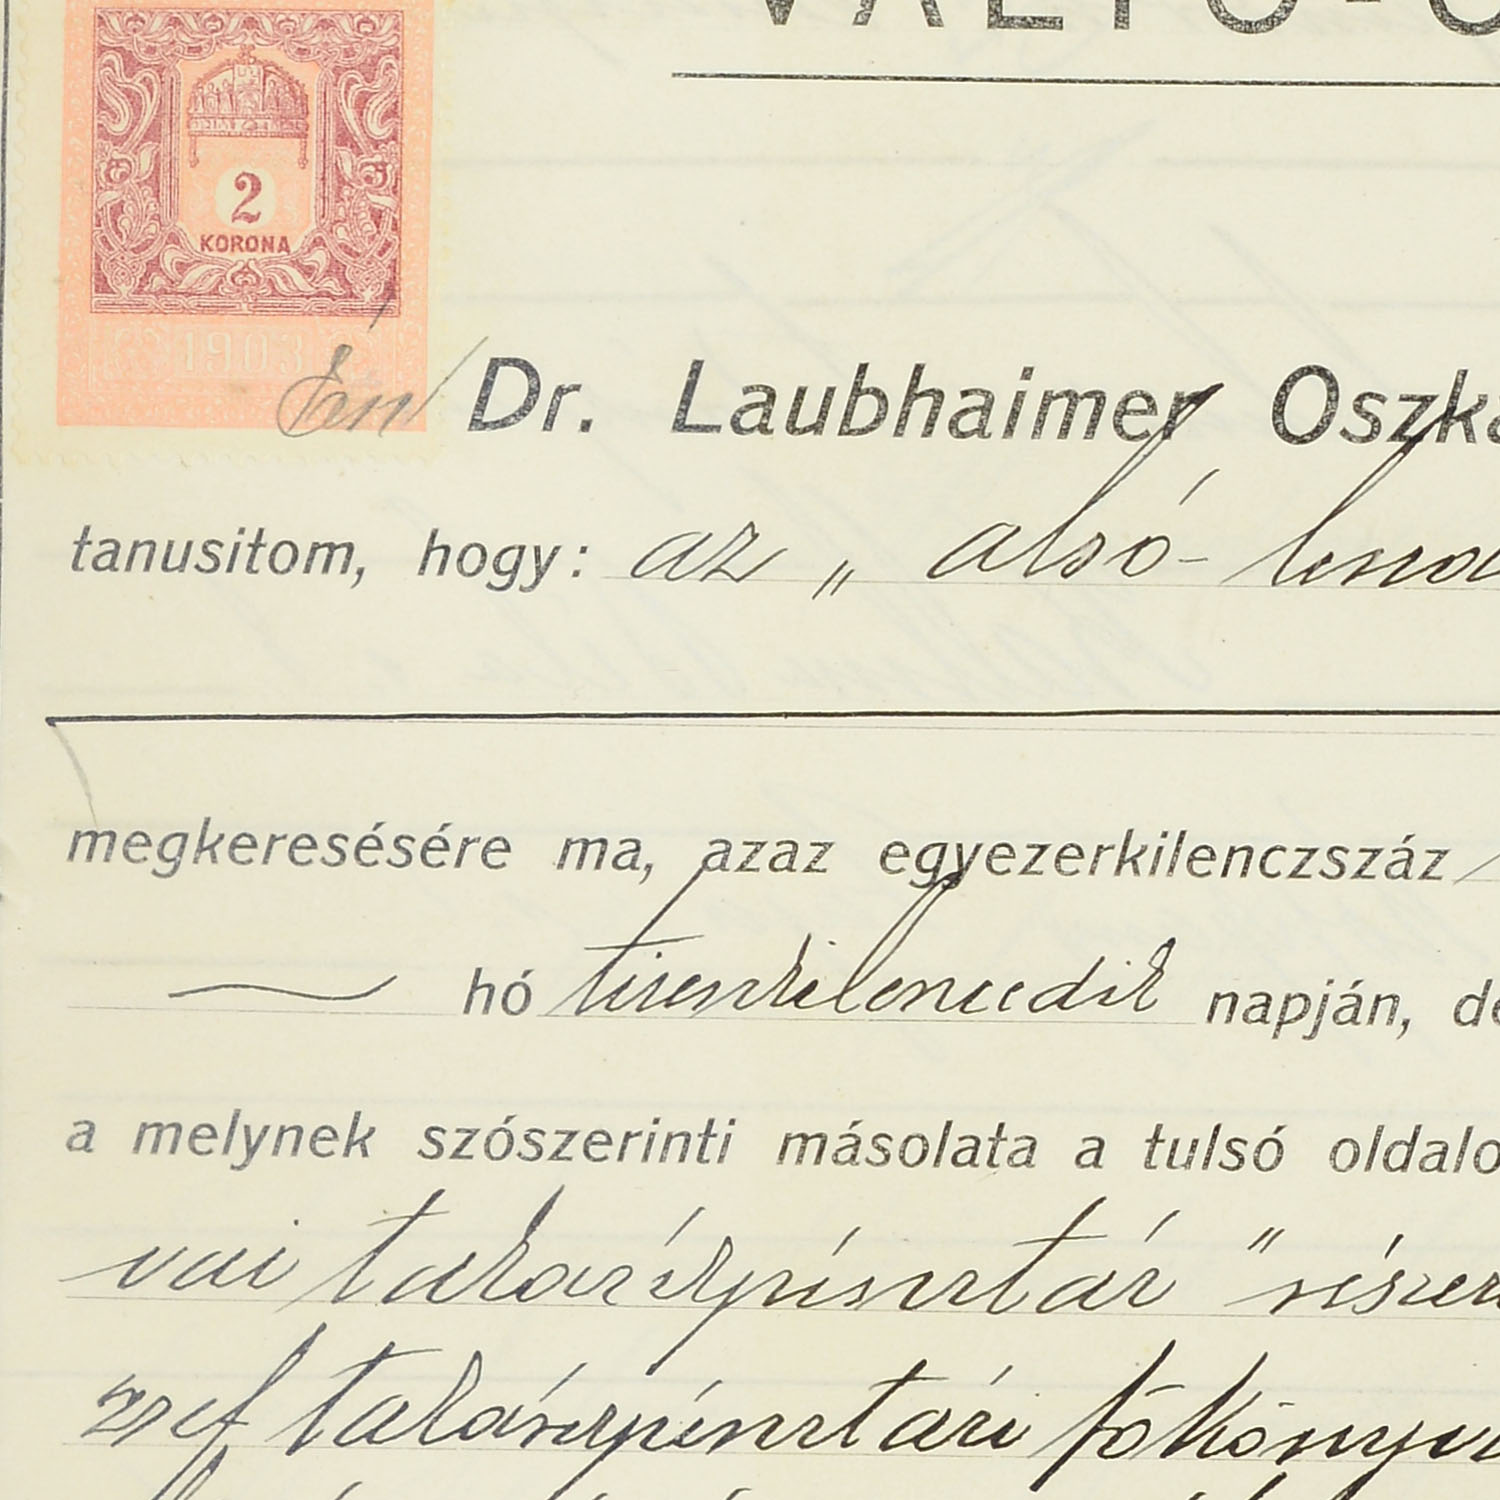 VÁLTÓ-Ó
2
KORONA
1903
Én Dr. Laubhaimer Oszká
tanusitom, hogy: az „ alsó-lenda
megkeresésére ma, azaz egyezerkilenczszáz
hó tizenkilencedik napján, de
a melynek szószerinti másolata a tulsó oldalo
vai takarékpénztár " részér
zsef takarékpénztári főkönyve